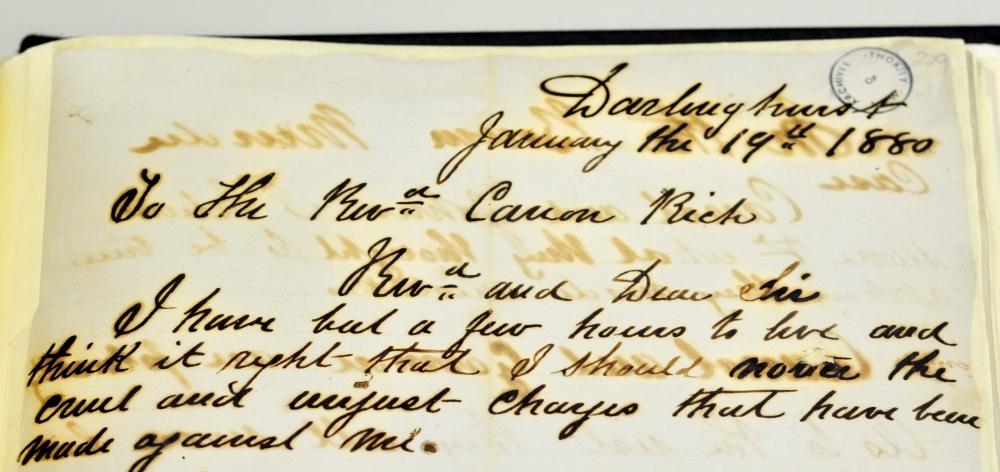 Darlinghurst
January the 19th 1880
To The Revd Canon Rich
Revd and Dear Sir
I have but a few hours to live and
think it right that I should the
cruel and unjust charges that have been
made against me.
ARCHIVES AUTHORITY OF